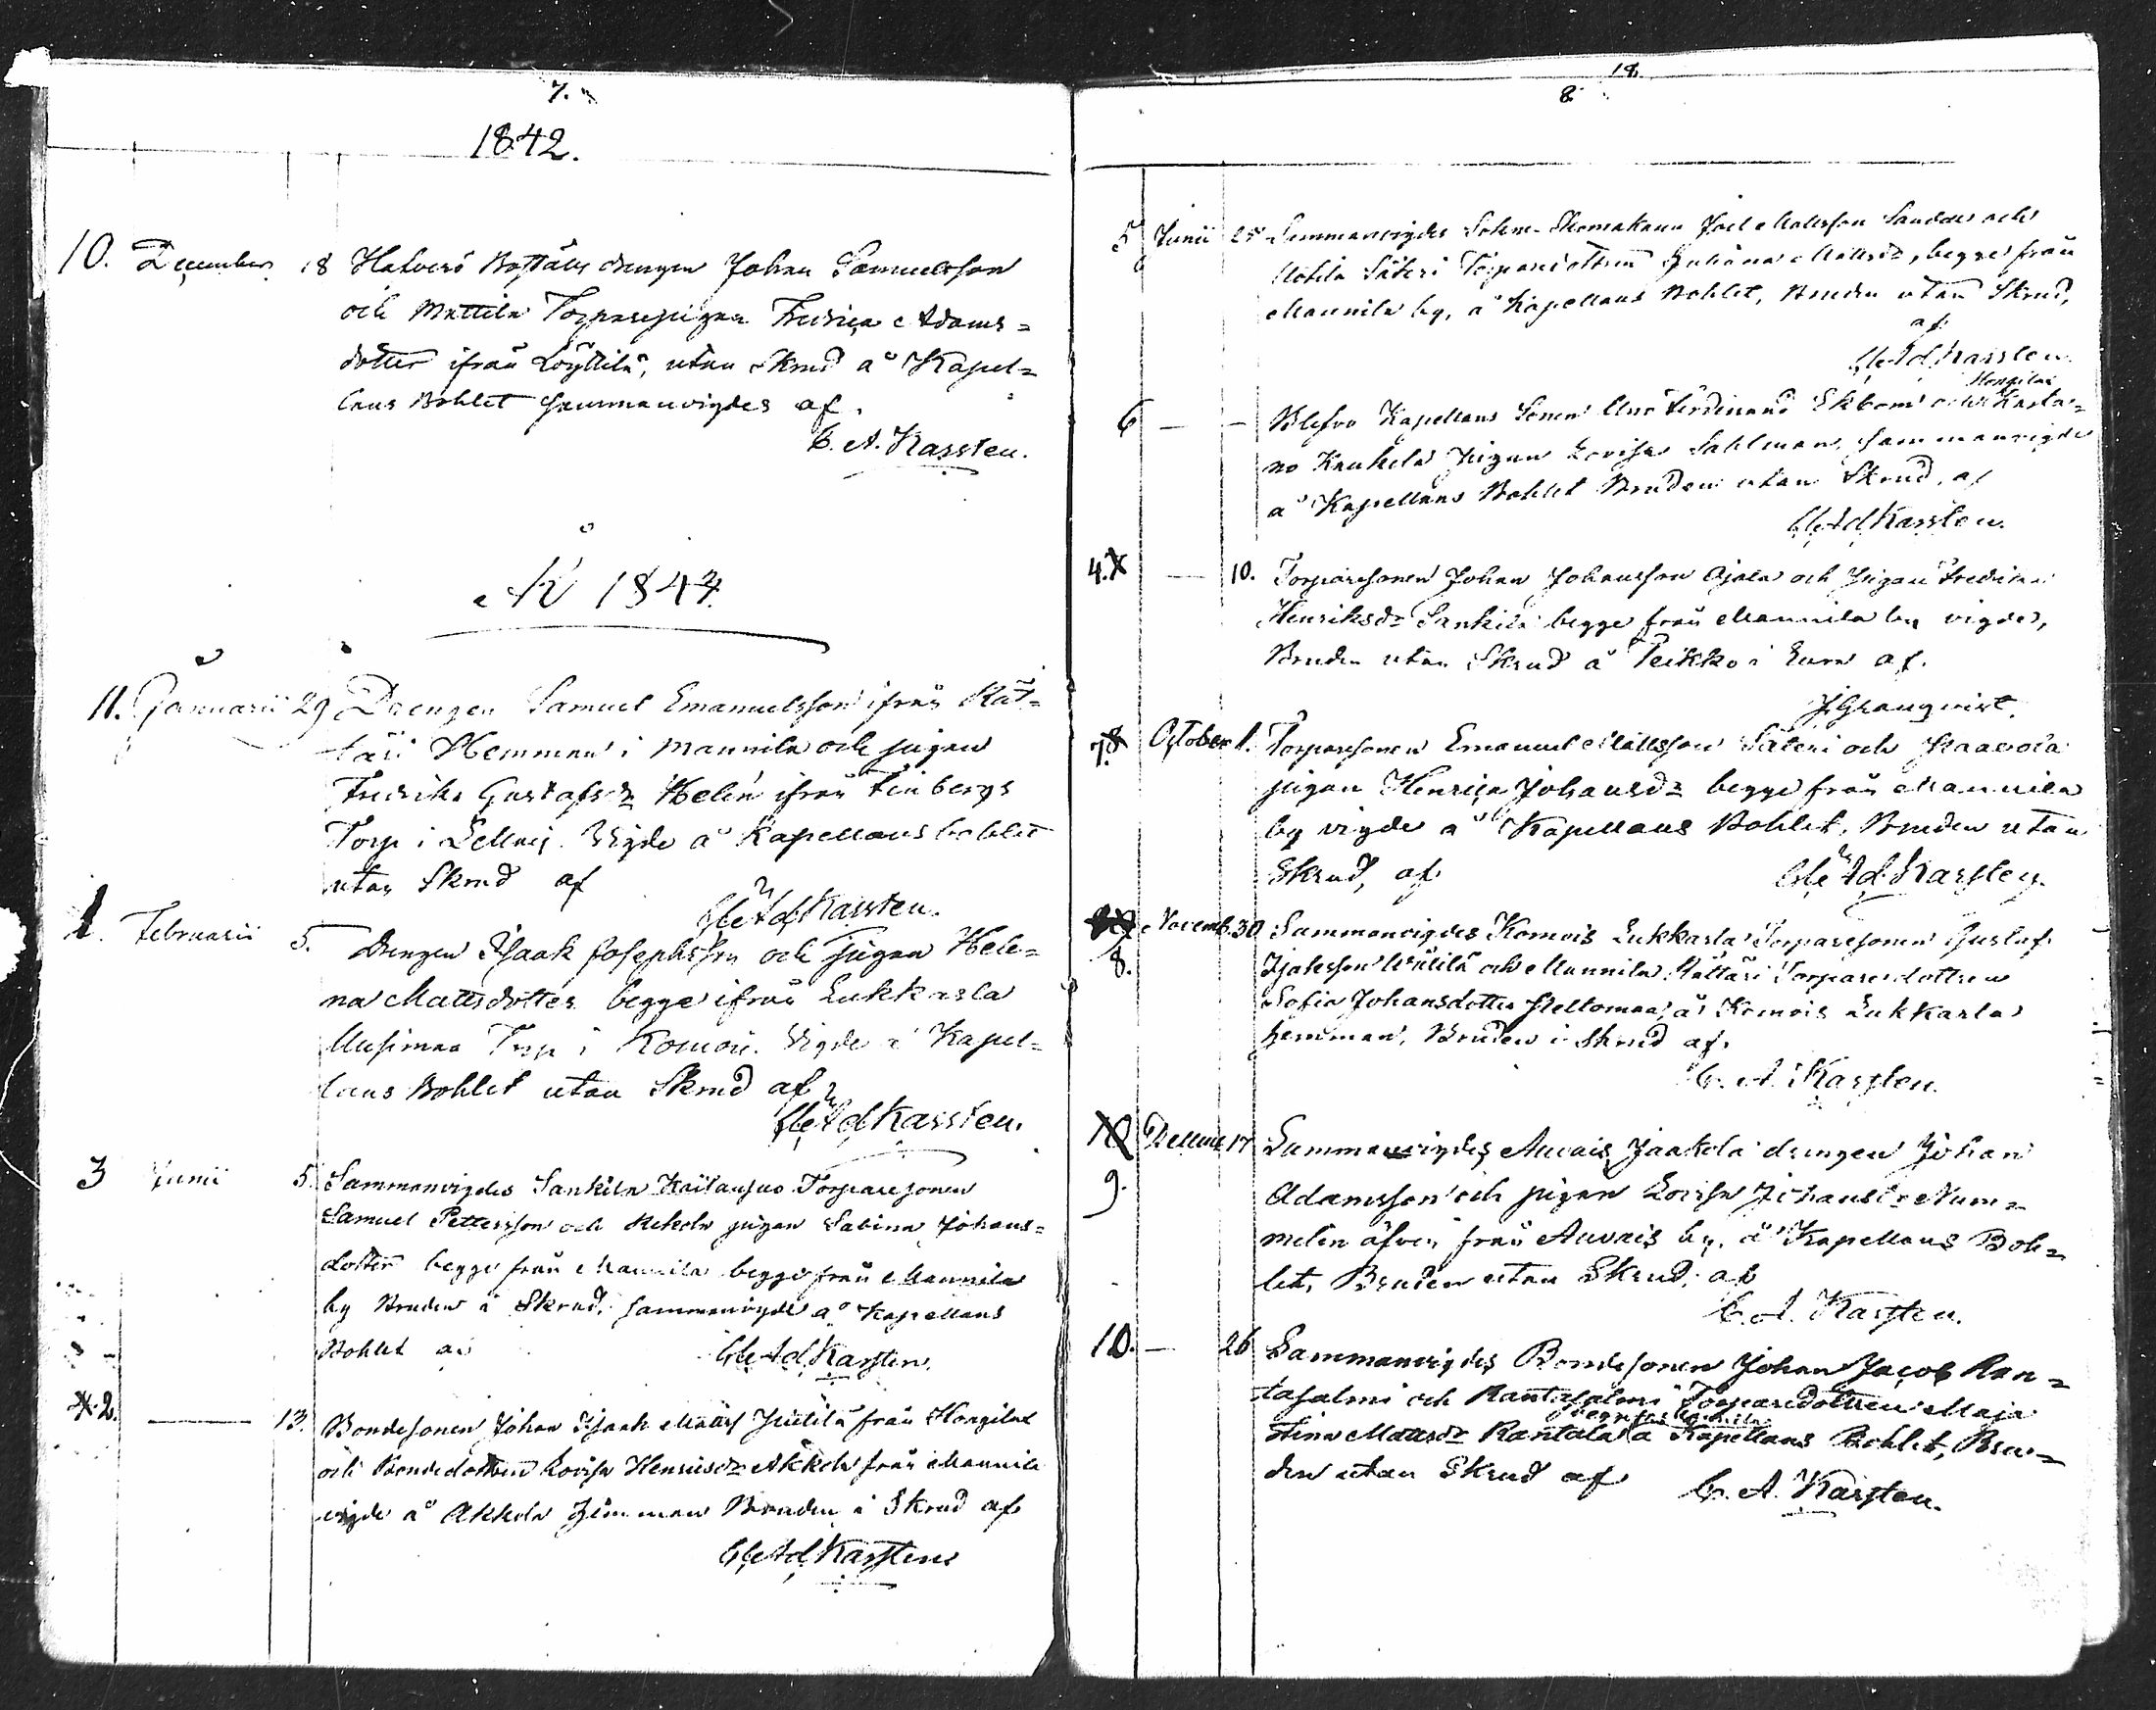 7.
1842.
10. December 18 Hatverö Boställs drengen Johan Samuelsson
och Mattila Torparepigan Fredrica Adams=
dotter ifrån Löyttilä, utan Skrud å Kapel=
lans Bohlet sammanvigdes af.
C. A. Karsten.
År 1844.
11. Januarii 29 Drengen Samuel Emanuelsson ifrån Rät=
täri Hemman i Mannila och pigan
Fredrika Gustafsdr Helén ifrån Finbergs
Torp i Vigde å Kapellans bohlet
utan Skrud af
Ad Karsten.
1. Februarii 5. Drengen Isaak Josephsson och Pigan Hele=
na Mattsdotter begge ifrån Lukkarla
Uusimaa Torp i Komois. Vigde å Kapel=
lans Bohlet utan Skrud af
Ad Karsten.
3 Junii 5. Sammanvigdes Sankila Torparesonen
Samuel Pettersson och pigan Sabina Johans=
dotter begge från Mannila begge från Mannila
by Bruden i Skrud, sammanvigde å Kapellans
Bohlet af
Ad Karsten.
2. — 13. Bondesonen Johan Isaak från Hongilax
och Bondedottren Lovisa Henricsdr Akkola från Mannila
vigde å Akkola Hemman Bruden i Skrud af
Ad Karsten
18
8
5 Junii 25 Sammanvigdes Sockne-Skomakaren Joel Mattsson Sandell och
Säteri Torparedottren Juliana Mattsdr, begge från
Mannila by, å Kapellans Bohlet, Bruden utan Skrud,
af
Ad Karsten.
Hongilax
6 — — Kapellans Sonen Ferdinand Ekbom och Kasta=
no Kaukola Pigan Lovisa Sahlman, sammanvigde
å Kapellans Bohlet Bruden utan Skrud, af
Ad Karsten.
4. — 10. Torparesonen Johan Johansson Ojala och Pigan Fredrika
Henriksdr Sankila begge från Mannila by vigde,
Bruden utan Skrud å Peikko i Eura af.
J Granqvist.
7. October 1. Torparesonen Emanuel Mattsson Säteri och
pigan Henrica Johansdr begge från Mannila
by vigde å Kapellans Bohlet, Bruden utan
Skrud, af
Ad. Karsten.
Novemb. 30 Sammanvigdes Komois Lukkarla Torparesonen Gustaf
8. och Mannila Rättäri Torparedottren
Sofia Johansdotter å Komois Lukkarla
hemman, Bruden i Skrud af.
C. A. Karsten.
17 Sammanvigdes Auvais Jaakola drengen Johan
9. Adamsson och pigan Lovisa Johansdr Num=
melin äfven från Auvais by, å Kapellans Boh=
let, Bruden utan Skrud, af
C. A. Karsten.
10. — 26 Sammanvigdes Bondesonen Johan Jacob Ran=
tasalmi och Rantasalmi Torparedottren Maja
Stina Mattsdr Rantala å Kapellans Bohlet, Bru=
den utan Skrud af
C. A. Karsten.